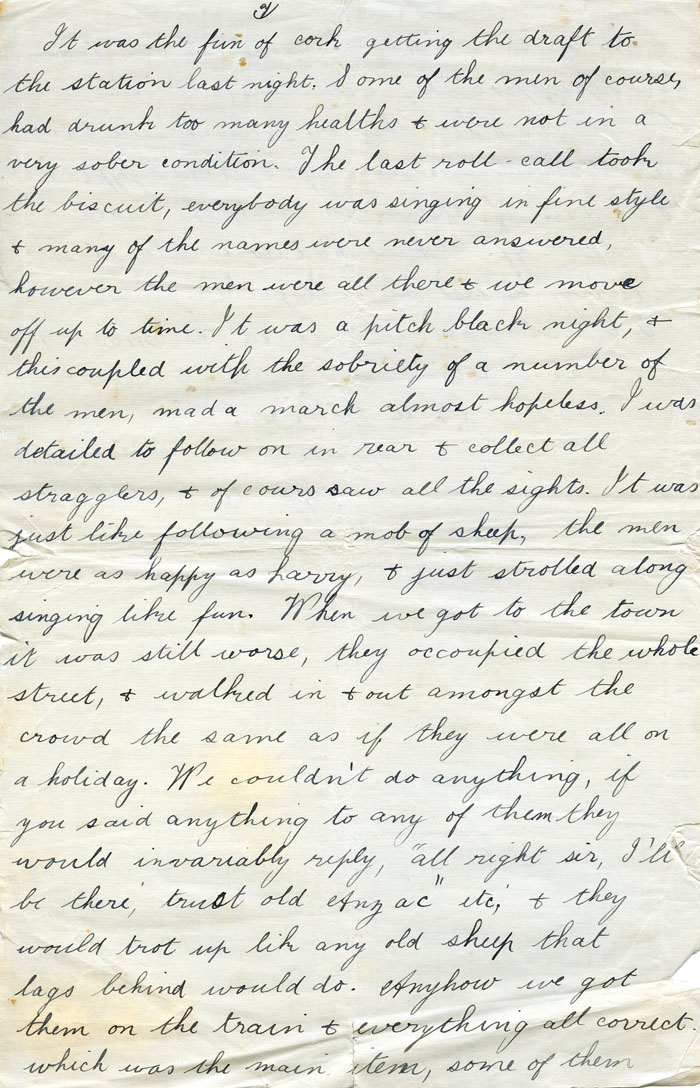 It was the fun of cork getting the draft to
the station last night. Some of the men of course,
had drunk too many healths & were not in a
very sober condition. The last roll-call took
the biscuit, everybody was singing in fine style
& many of the names were never answered,
however the men were all there & we move
off up to time. It was a pitch black night, &
this coupled with the sobriety of a number of
the men, made a march almost hopeless. I was
detailed to follow on in rear & collect all
stragglers, & of cours saw all the sights. It was
just like following a mob of sheep, the men
were as happy as harry, & just strolled along
singing like fun. When we got to the town
it was still worse, they occupied the whole
street, & walked in & out amongst the
crowd the same as if they were all on
a holiday. We couldn't do anything, if
you said anything to any of them they
would invariably reply, "all right sir, I'll
be there, trust old Anzac" etc, & they
would trot up lik any old sheep that
lags behind would do. Anyhow we got
them on the train & everything all correct.
which was the main item, some of them